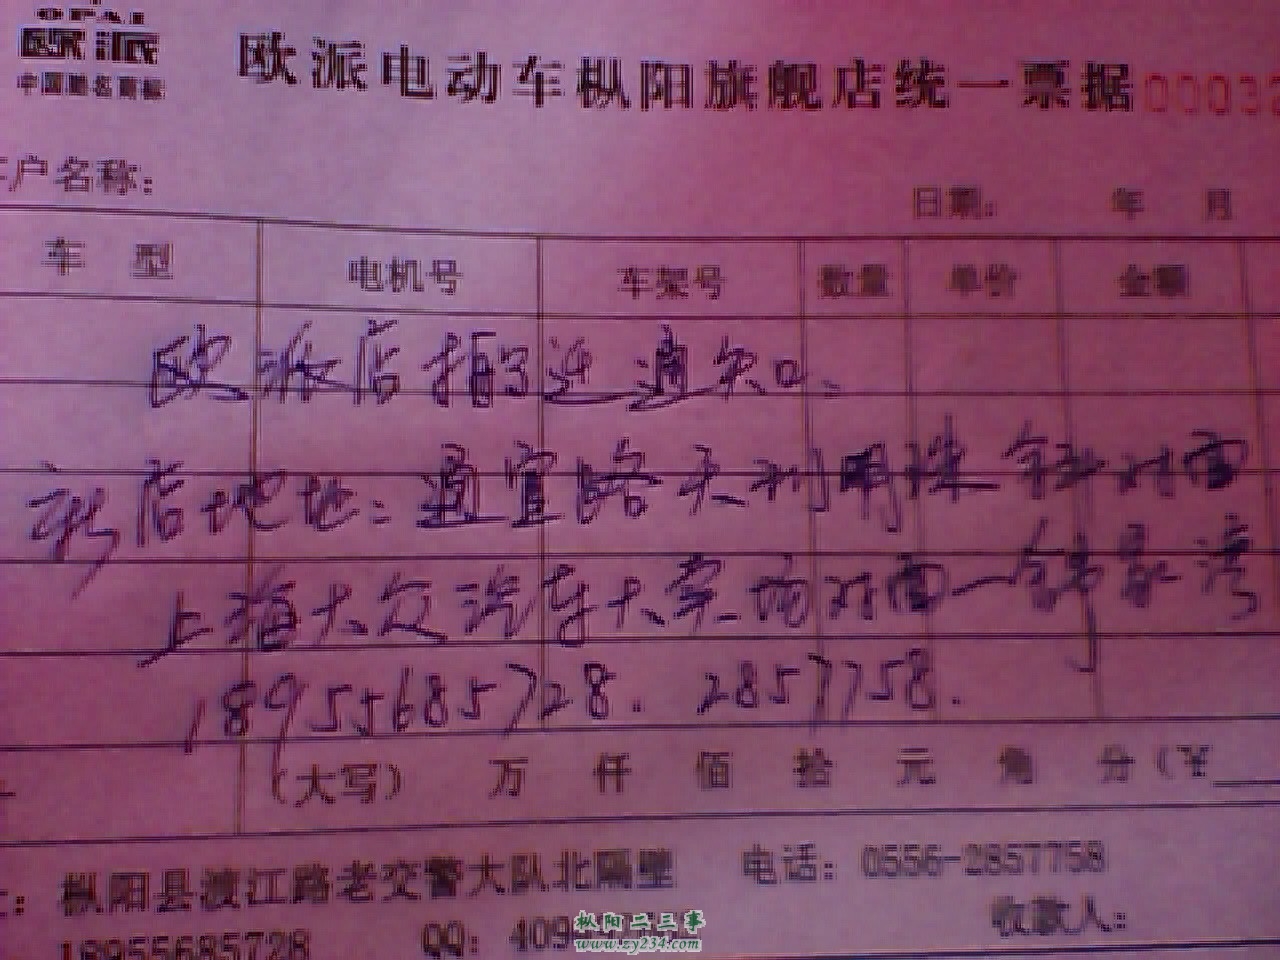 OPAI
欧派
中国驰名商标
欧派电动车枞阳旗舰店统一票据 00032
客户名称：
日期： 年 月
车 型 电机号 车架号 数量 单价 金额
欧派店搬迁通知：
新店地址：通宜路天利明珠 斜对面
上海大众汽车大卖场对面一锦景湾
18955685728. 2857758.
（大写） 万 仟 佰 拾 元 角 分（￥
枞阳县渡江路老交警大队北隔壁 电话：0556-2857758
18955685728 QQ: 409 收款人：
枞阳二三事
www.zy234.com